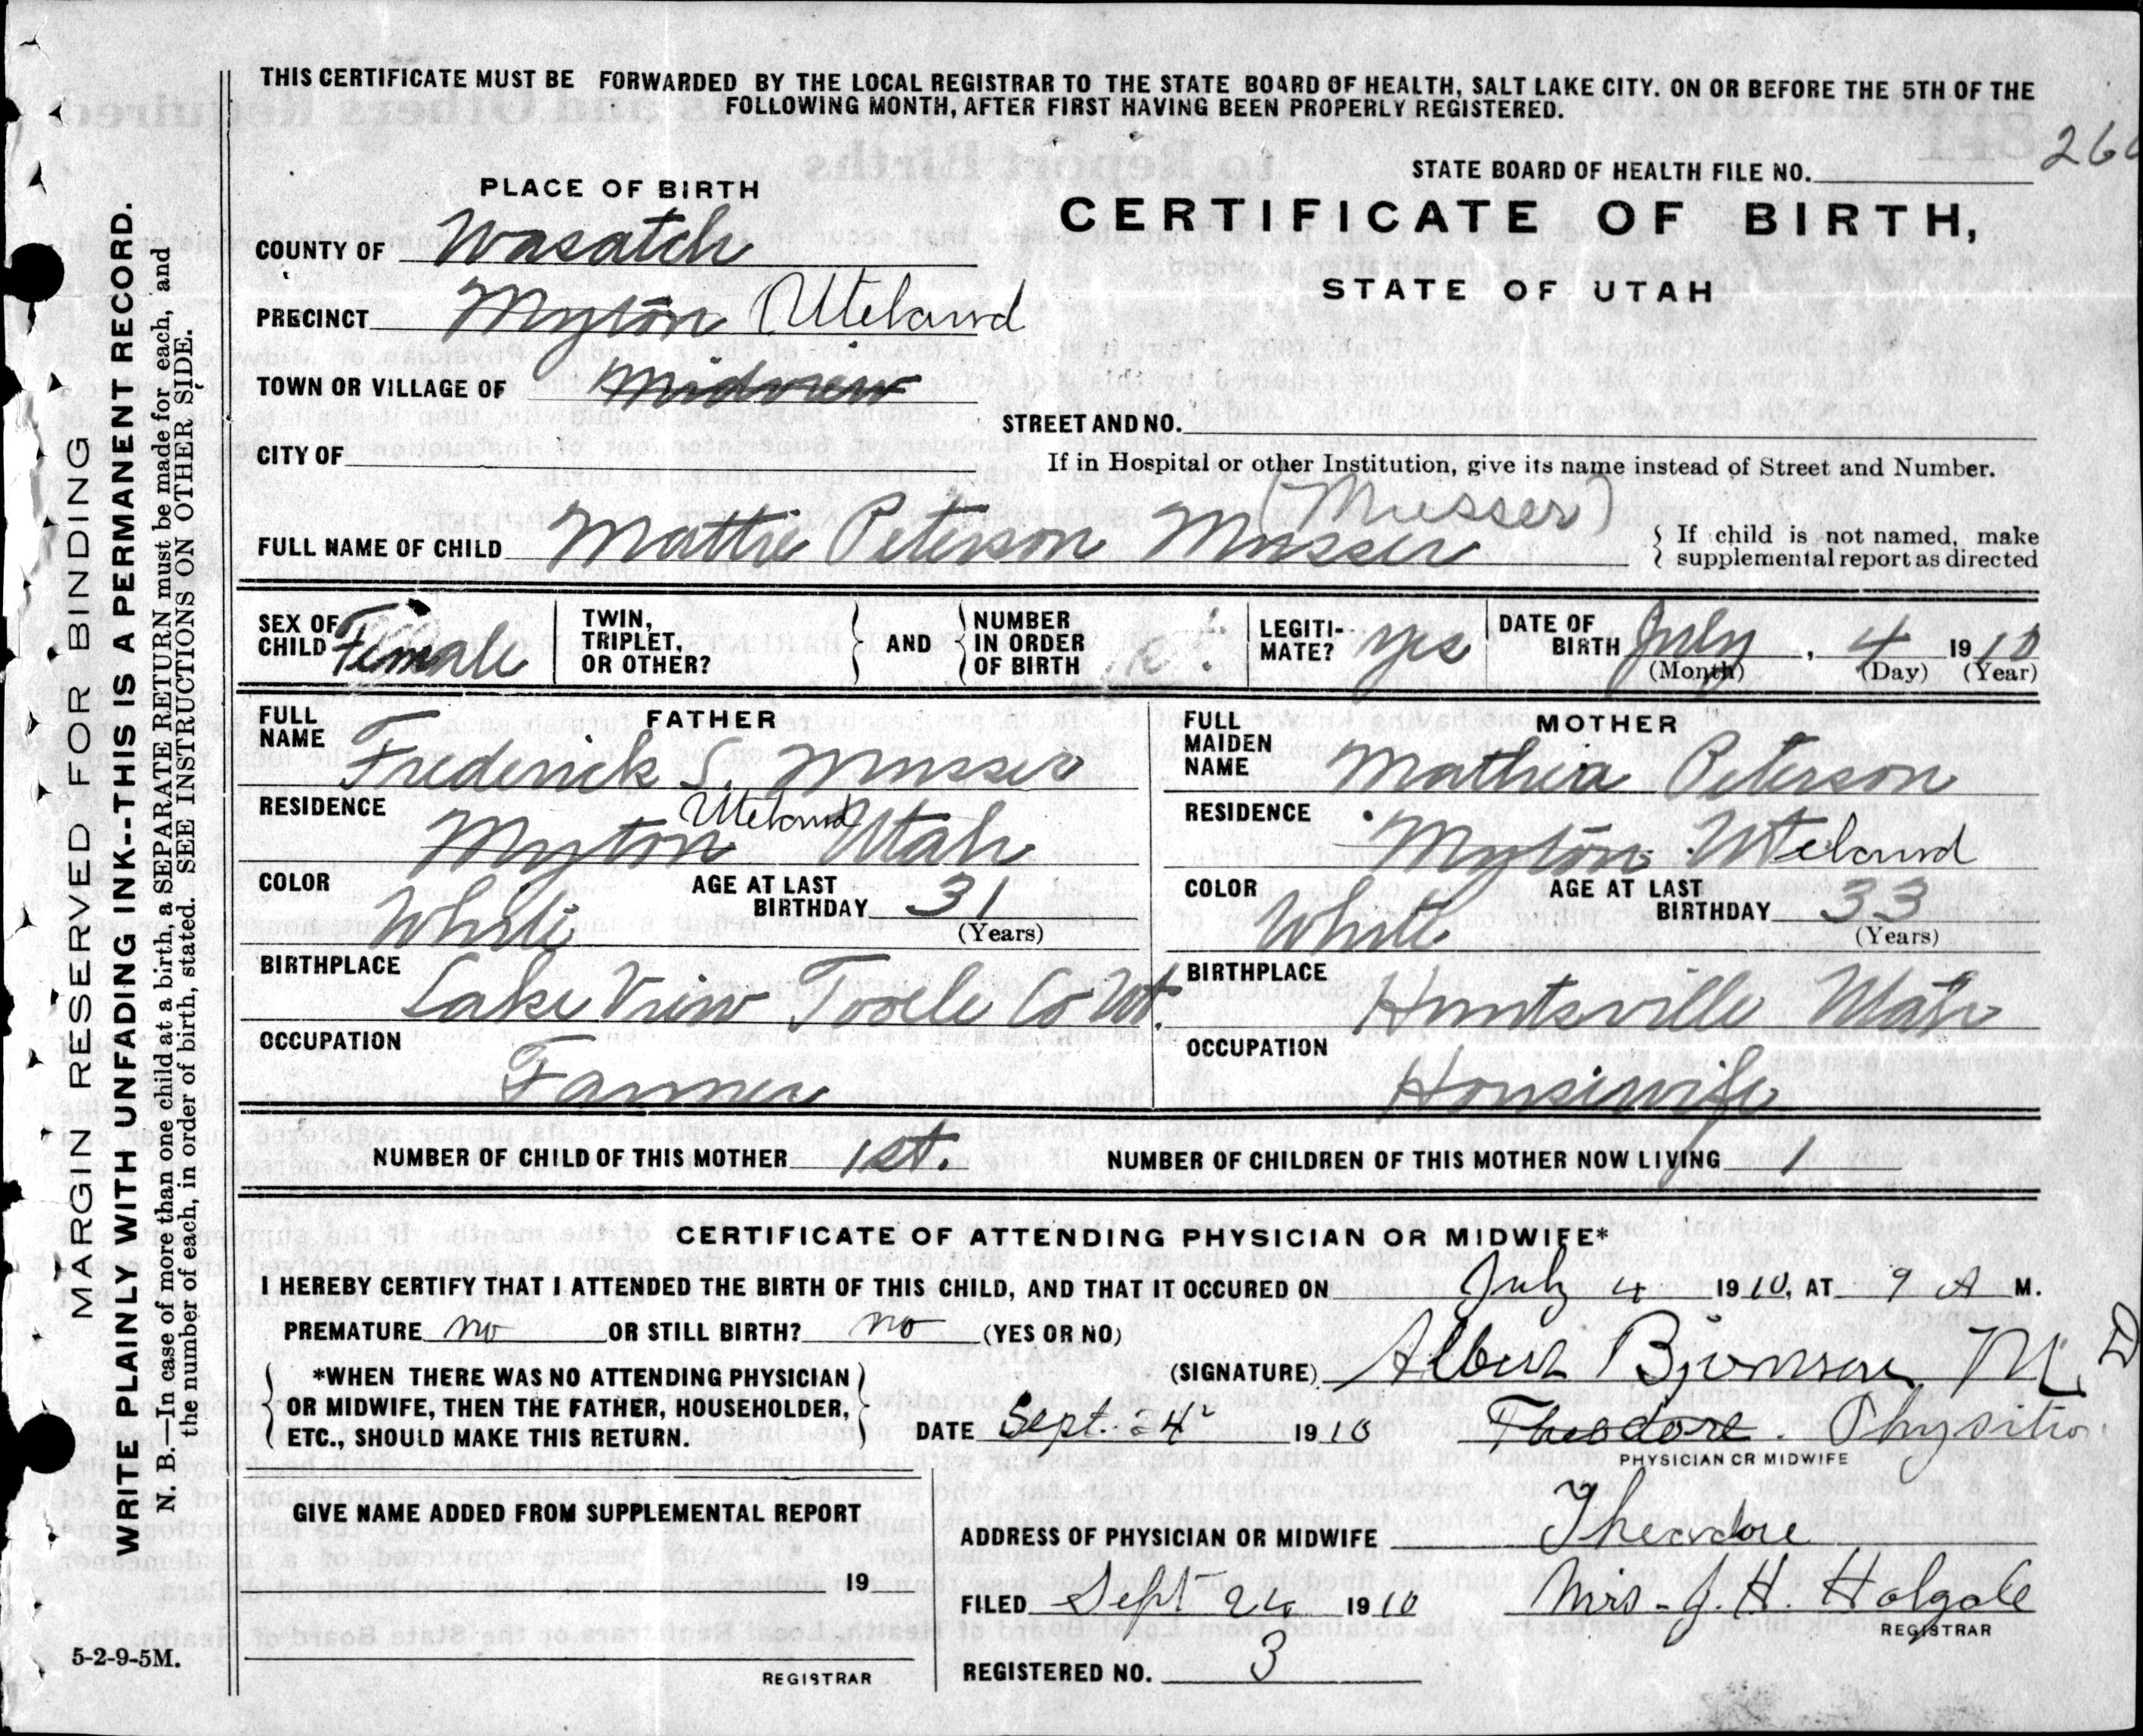 THIS CERTIFICATE MUST BE FORWARDED BY THE LOCAL REGISTRAR TO THE STATE BOARD OF HEALTH, SALT LAKE CITY. ON OR BEFORE THE 5TH OF THE
FOLLOWING MONTH, AFTER FIRST HAVING BEEN PROPERLY REGISTERED.
STATE BOARD OF HEALTH FILE NO.
PLACE OF BIRTH
CERTIFICATE OF BIRTH,
STATE OF UTAH
COUNTY OF Wasatch
PRECINCT Myton Uteland
TOWN OR VILLAGE OF Midview
STREET AND NO.
CITY OF
If in Hospital or other Institution, give its name instead of Street and Number.
(Musser)
FULL NAME OF CHILD Mattie Peterson Musser { If child is not named, make
supplemental report as directed
SEX OF CHILD Female
TWIN, TRIPLET, OR OTHER? } AND { NUMBER IN ORDER OF BIRTH
LEGITI-MATE? yes
DATE OF BIRTH July, 4 1910
(Month) (Day) (Year)
FATHER
FULL NAME Frederick S. Musser
RESIDENCE Myton Uteland Utah
COLOR White AGE AT LAST BIRTHDAY 31
(Years)
BIRTHPLACE Lake View Tooele Co Ut.
OCCUPATION Farmer
MOTHER
FULL MAIDEN NAME Mathia Peterson
RESIDENCE Myton Uteland
COLOR White AGE AT LAST BIRTHDAY 33
(Years)
BIRTHPLACE Huntsville Utah
OCCUPATION Housewife
NUMBER OF CHILD OF THIS MOTHER 1st. NUMBER OF CHILDREN OF THIS MOTHER NOW LIVING 1
CERTIFICATE OF ATTENDING PHYSICIAN OR MIDWIFE*
I HEREBY CERTIFY THAT I ATTENDED THE BIRTH OF THIS CHILD, AND THAT IT OCCURED ON July 4 1910, AT 9 A M.
PREMATURE no OR STILL BIRTH? no (YES OR NO)
*WHEN THERE WAS NO ATTENDING PHYSICIAN
OR MIDWIFE, THEN THE FATHER, HOUSEHOLDER,
ETC., SHOULD MAKE THIS RETURN.
(SIGNATURE) Albert Bjornson M.D
DATE Sept. 4 1910 Theodore. Physition
PHYSICIAN OR MIDWIFE
GIVE NAME ADDED FROM SUPPLEMENTAL REPORT
19
REGISTRAR
ADDRESS OF PHYSICIAN OR MIDWIFE Theodore
FILED Sept 24 1910 Mrs. J. H. Holgate
REGISTRAR
REGISTERED NO. 3
5-2-9-5M.
MARGIN RESERVED FOR BINDING
WRITE PLAINLY WITH UNFADING INK--THIS IS A PERMANENT RECORD.
N. B.—In case of more than one child at a birth, a SEPARATE RETURN must be made for each, and
the number of each, in order of birth, stated. SEE INSTRUCTIONS ON OTHER SIDE.